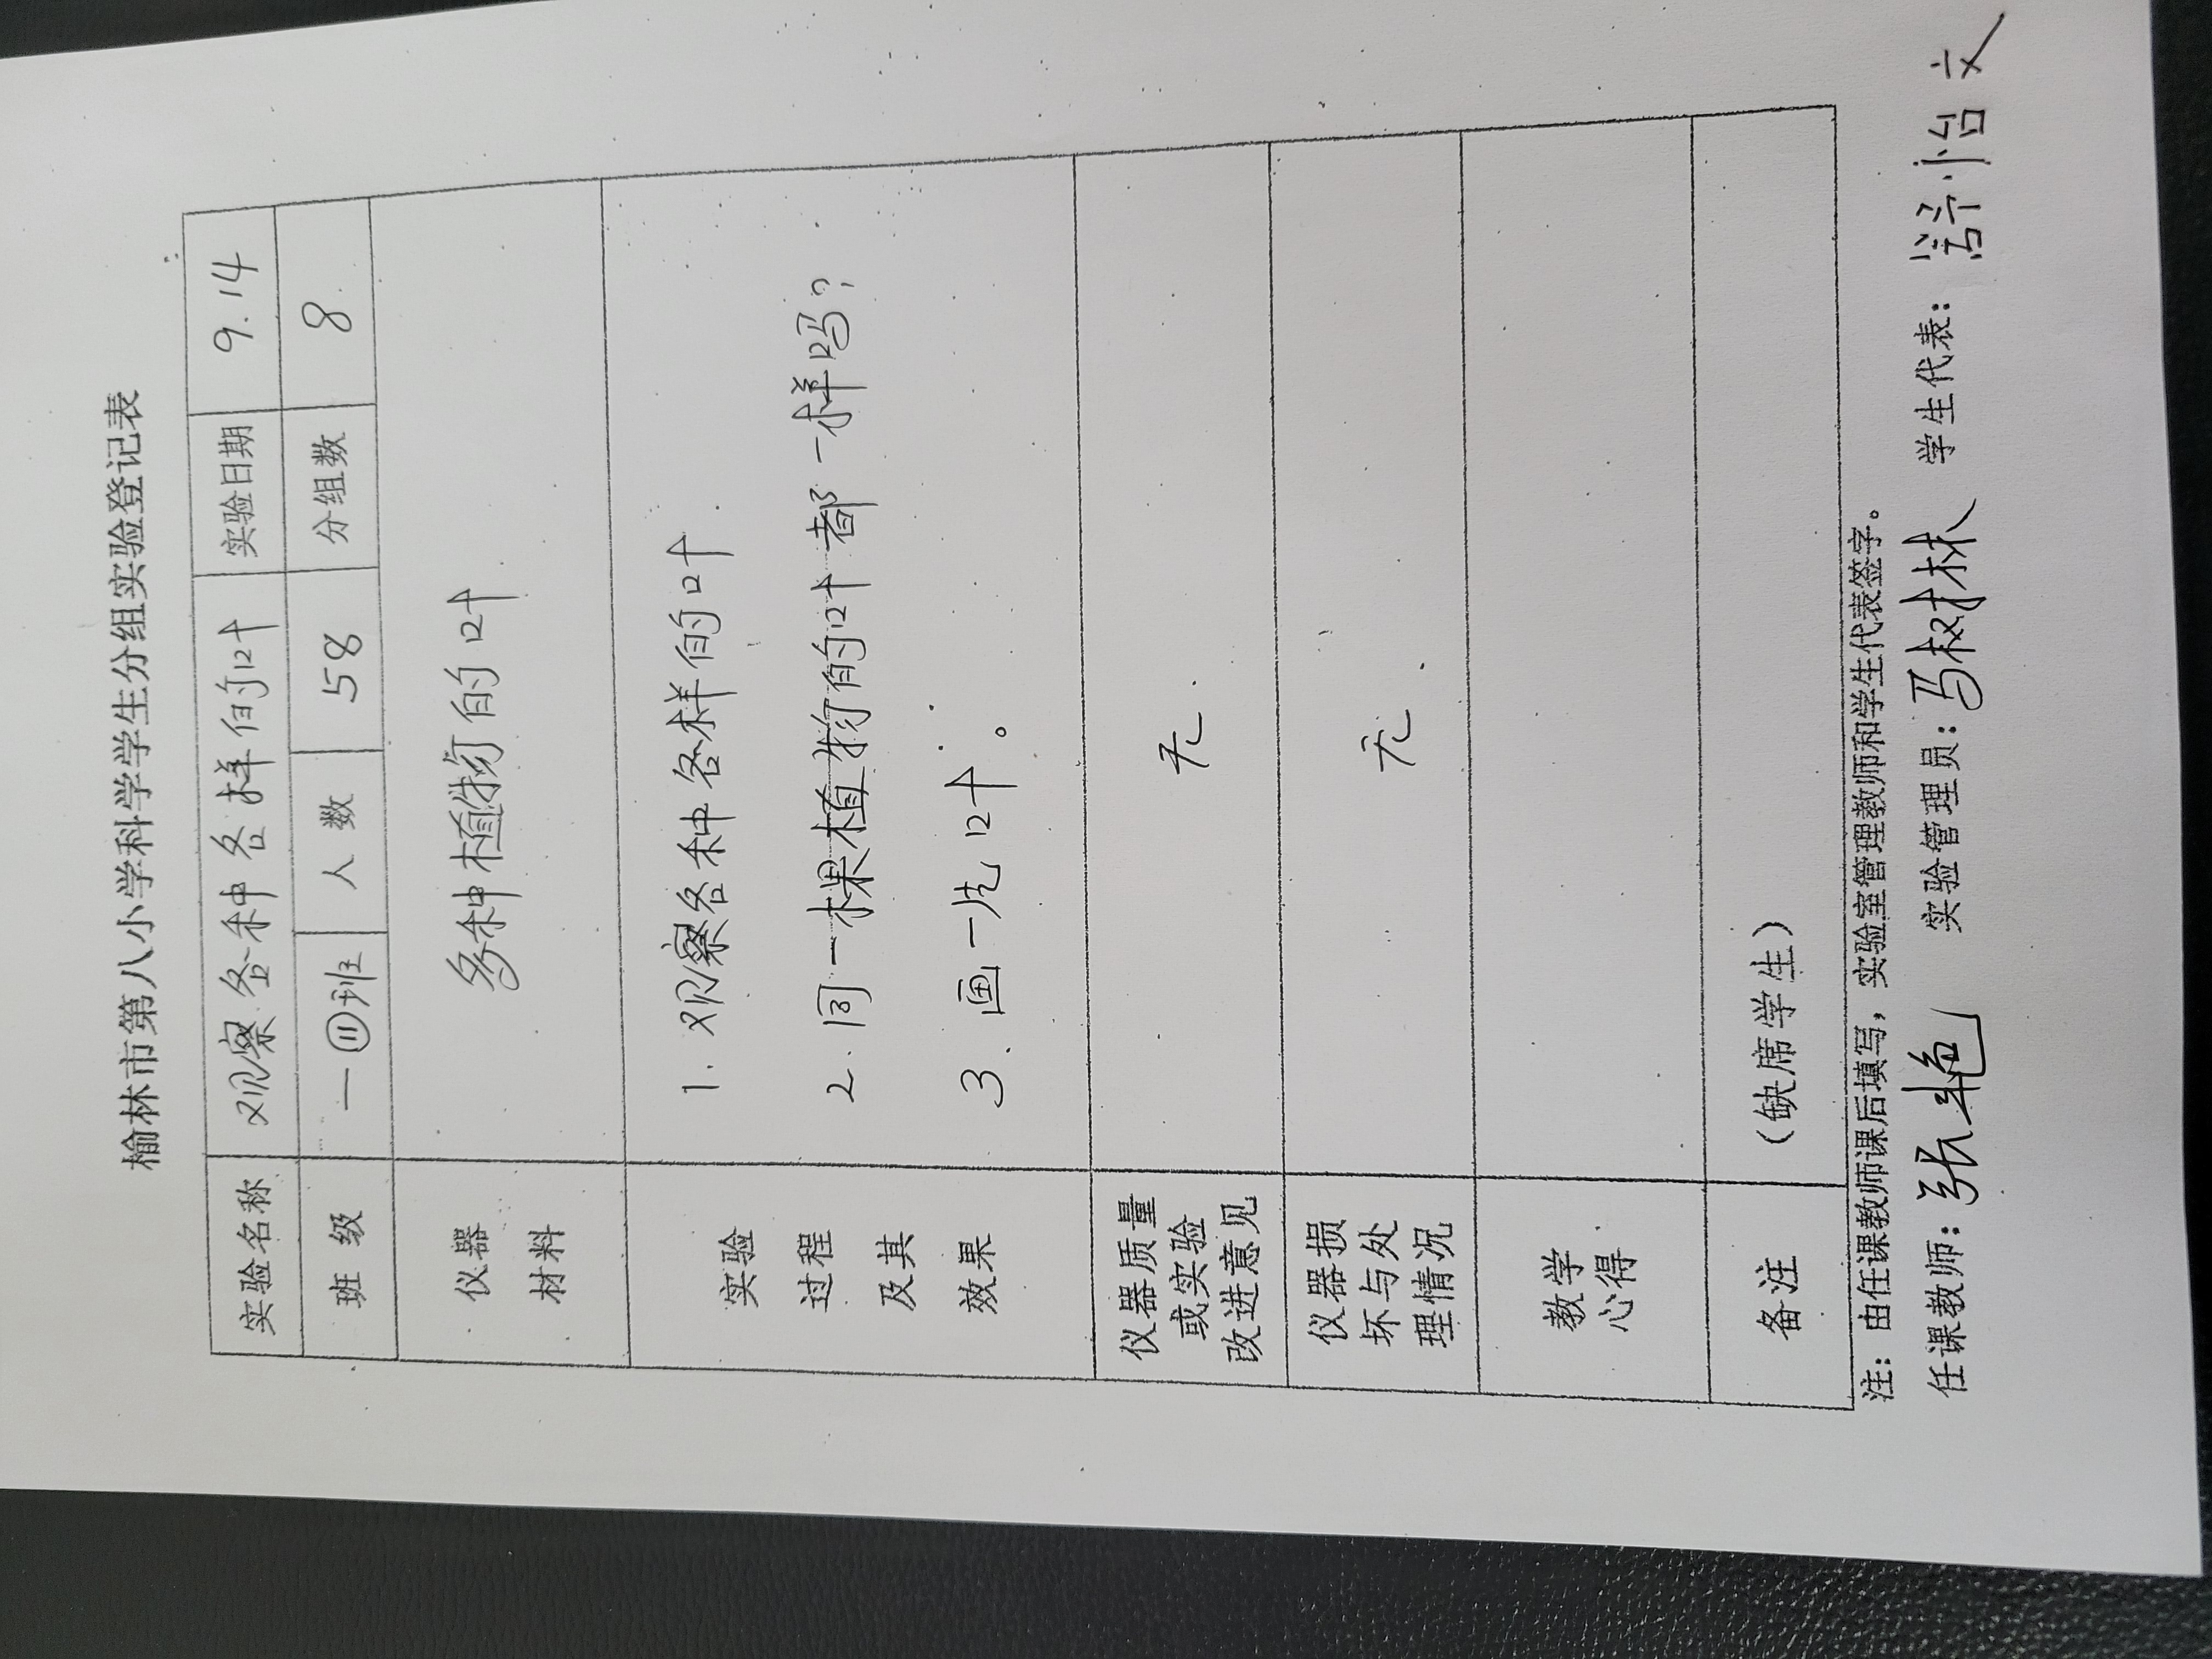 榆林市第八小学科学学生分组实验登记表
实验名称 观察各种各样的叶 实验日期 9.14
班级 一⑪班 人数 58 分组数 8
仪器
材料
多种植物的叶
实验
过程
及其
效果
1. 观察各种各样的叶.
2. 同一棵植物的叶都一样吗?
3. 画一片叶。
仪器质量
或实验
改进意见
无.
仪器损
坏与处
理情况
无.
教学
心得
备注
(缺席学生)
注:由任课教师课后填写,实验室管理教师和学生代表签字。
任课教师:张艳 实验管理员:马树林 学生代表:怡文